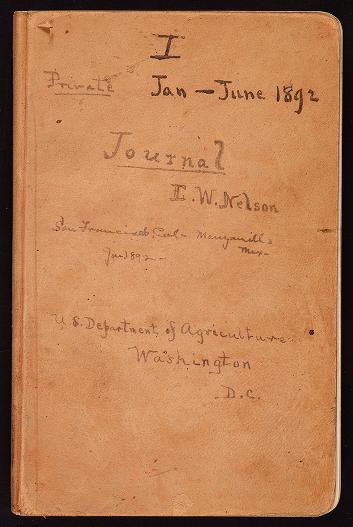 I
Private Jan — June 1892
Journal
E. W. Nelson
San Francisco, Cal - Manzanillo
Mex -
Jan 1892 -
U.S. Department of Agriculture
Washington
D.C.